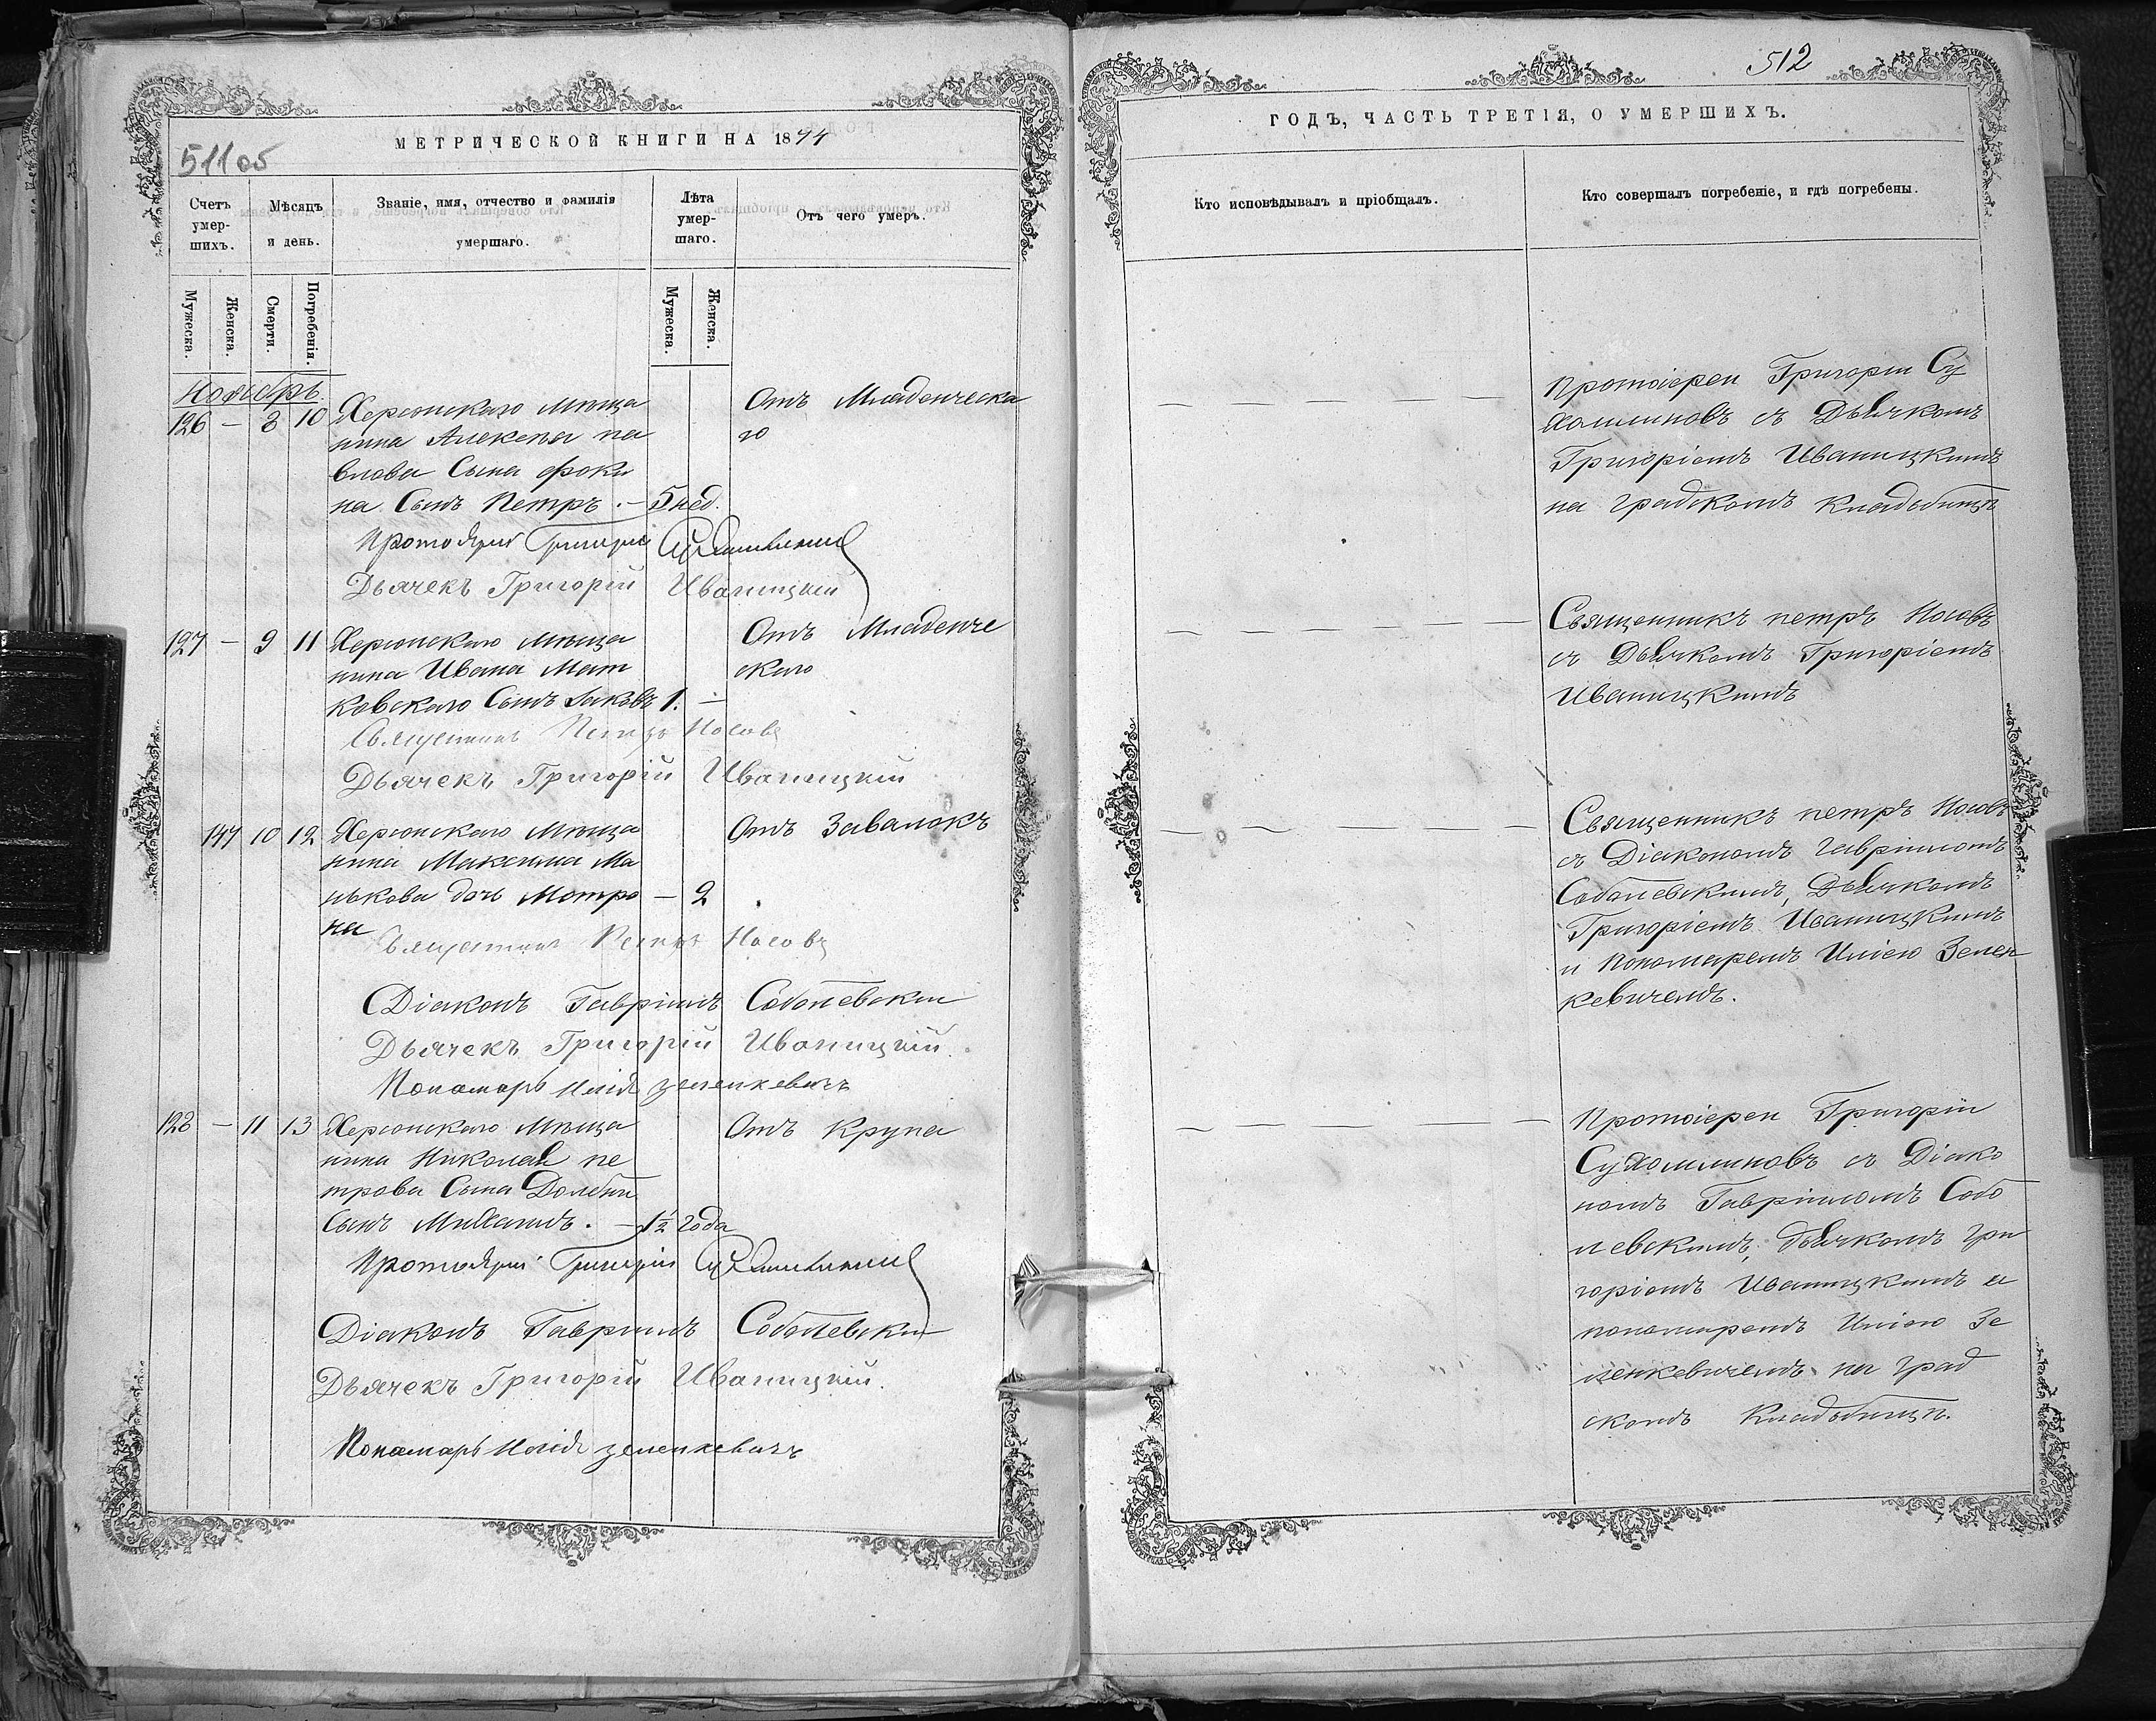 511об
МЕТРИЧЕСКОЙ КНИГИ НА 1874
Счетъ умер-шихъ.
Мѣсяцъ и день.
Званіе, имя, отчество и фамилія умершаго.
Лѣта умер-шаго.
Отъ чего умеръ.
Мужеска.
Женска.
Смерти.
Погребенія.
Мужеска.
Женска.
Ноябрь
126 — 8 10 Херсонскаго мѣща Отъ Младенческа
нина Алексѣя па го
влова Сына Фоки
на Сынъ Петръ. — 5 нед.
Протоіерей Григорій Сухомлиновъ
Дьячекъ Григорій Иваницкій
127 — 9 11 Херсонскаго мѣща Отъ Младенче
нина Ивана Мат скаго
ковскаго Сынъ Іаковъ 1. —
Священникъ Петръ Носовъ
Дьячекъ Григорій Иваницкій
147 10 12 Херсонскаго Мѣща Отъ Завалокъ
нина Максима Ма
нькова дочь Мотро — 2
на
Священникъ Петръ Носовъ
Діаконъ Гавріилъ Соболевскій
Дьячекъ Григорій Иваницкій.
Пономарь Илія Зеленкевичъ
128 — 11 13 Херсонскаго Мѣща Отъ Крупа
нина Николая пе
трова Сына
Сынъ Михаилъ. — 1½ года
Протоіерей Григорій Сухомлиновъ
Діаконъ Гавріилъ Соболевскій
Дьячекъ Григорій Иваницкій.
Пономарь Илія Зеленкевичъ
512
ГОДЪ, ЧАСТЬ ТРЕТІЯ, О УМЕРШИХЪ.
Кто исповѣдывалъ и пріобщалъ.
Кто совершалъ погребеніе, и гдѣ погребены.
Протоіерей Григорій Су
хомлиновъ съ Дьячкомъ
Григоріемъ Иваницкимъ
на градскомъ Кладбищѣ
Священникъ петръ Носовъ
съ Дьячкомъ Григоріемъ
Иваницкимъ
Священникъ петръ Носовъ
съ Діакономъ Гавріиломъ
Соболевскимъ, Дьячкомъ
Григоріемъ Иваницкимъ
и Пономаремъ Иліею Зелен
кевичемъ.
Протоіерей Григорій
Сухомлиновъ съ Діако
номъ Гавріиломъ Собо
левскимъ, дьячкомъ Гри
горіемъ Иваницкимъ и
пономаремъ Иліею Зе
ленкевичемъ на град
скомъ Кладбищѣ.